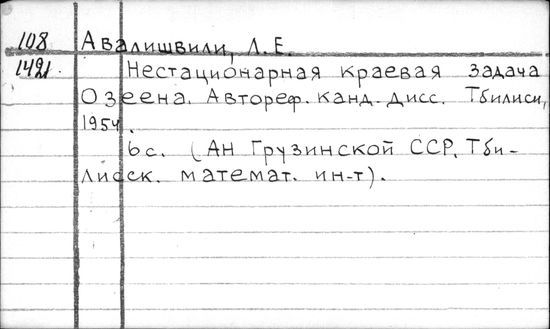 108 Авалишвили, Л. Е.
1421. Нестационарная краевая задача
Озеена. Автореф. канд. дисс. Тбилиси,
1954.
6 с. (АН Грузинской ССР. Тби-
лисск. математ. ин-т).